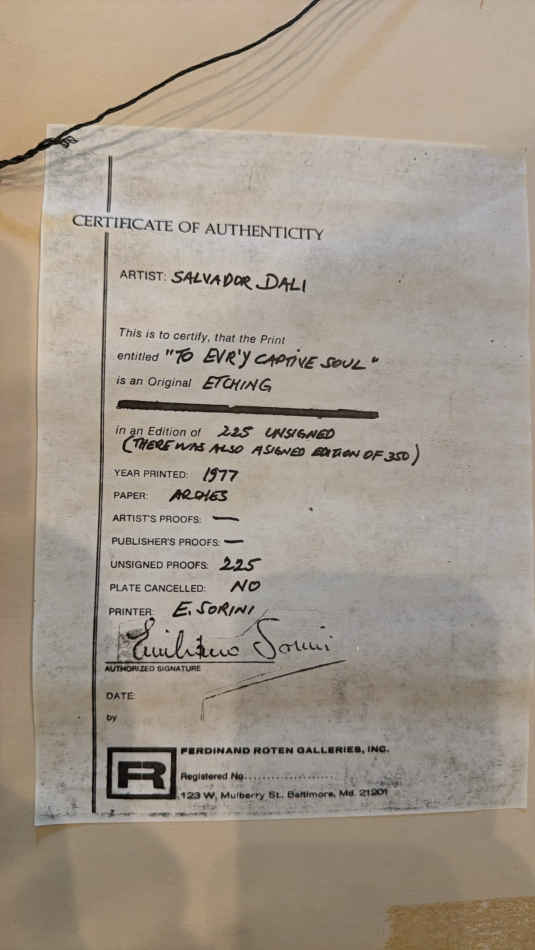 CERTIFICATE OF AUTHENTICITY
ARTIST: SALVADOR DALI
This is to certify, that the Print
entitled "TO EVR'Y CAPTIVE SOUL"
is an Original ETCHING
in an Edition of 225 UNSIGNED
(THERE WAS ALSO A SIGNED EDITION OF 350)
YEAR PRINTED: 1977
PAPER: ARCHES
ARTIST'S PROOFS: —
PUBLISHER'S PROOFS: —
UNSIGNED PROOFS: 225
PLATE CANCELLED: NO
PRINTER: E. SORINI
Emiliano Sorini
AUTHORIZED SIGNATURE
DATE:
by
FR
FERDINAND ROTEN GALLERIES, INC.
Registered No....................
123 W. Mulberry St., Baltimore, Md. 21201